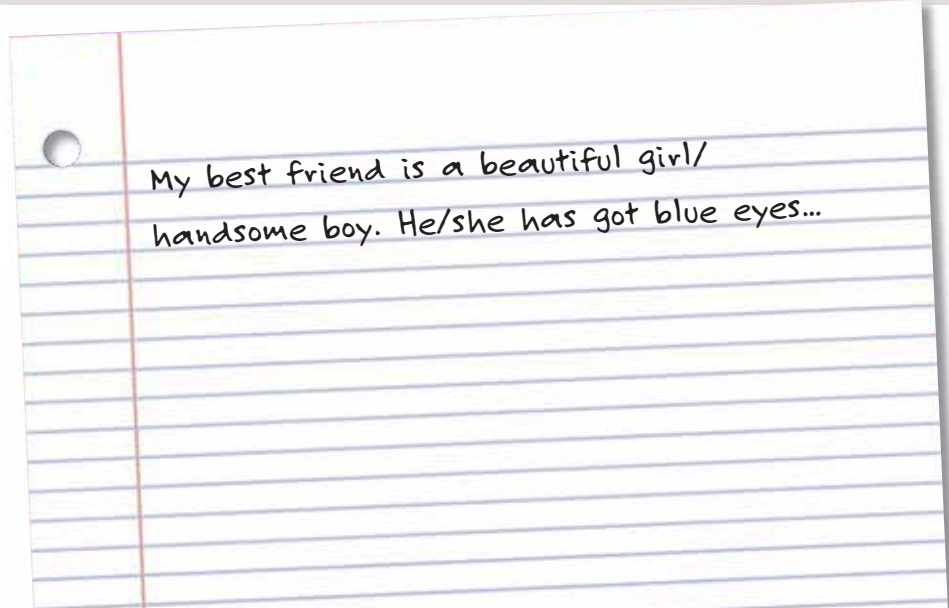 My best friend is a beautiful girl/
handsome boy. He/she has got blue eyes...